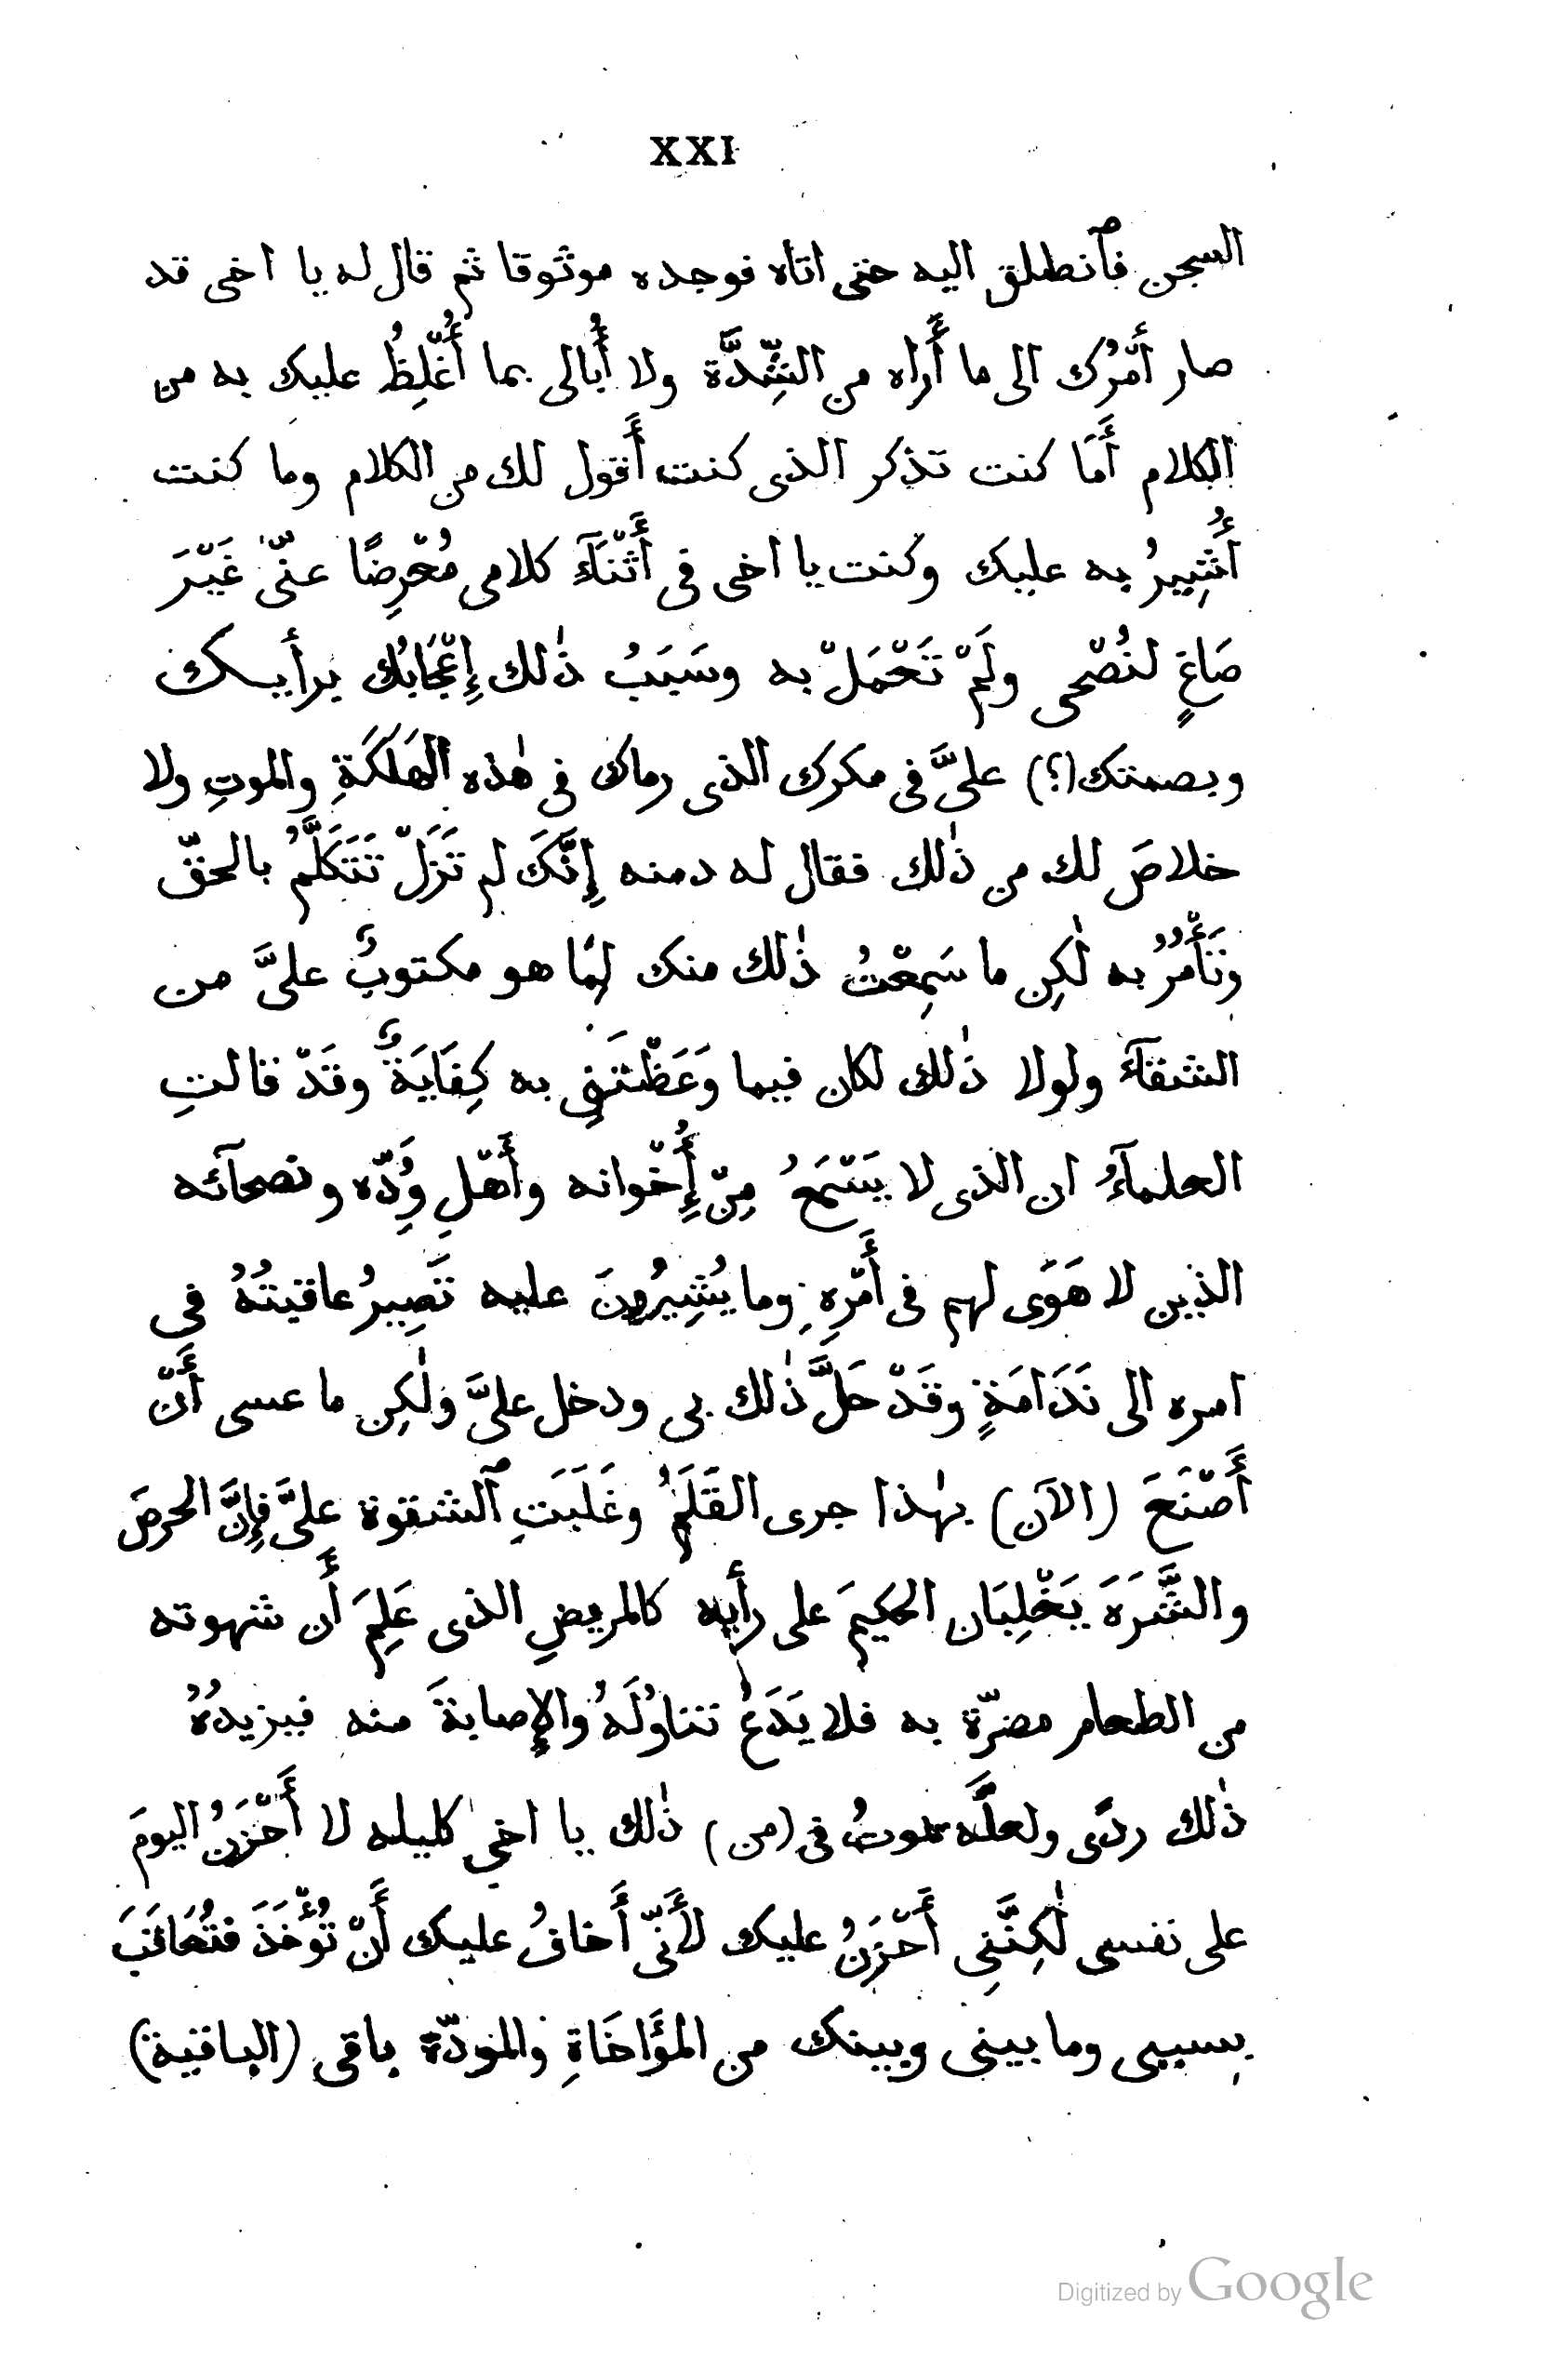 XXI
السجن فٱنطلق اليه حتى اتاه فوجده موثوقا ثم قال له يا اخى قد
صار أَمْرُك الى ما أَراه من الشِّدَّة ولا أُبالى بما أُغْلِظُ عليك به من
الكلام أَمَا كنت تذكر الذى كنت أَقول لك من الكلام وما كنت
أُشِيرُ به عليك وكنت يا اخى فى أَثْنَآءِ كلامى مُعْرِضًا عنّى غَيْرَ
صَاغٍ لنُصْحى ولَمْ تَعْمَلْ به وسَبَبُ ذٰلك إِعْجَابُك برأيك
وبصمتك(؟) علىَّ فى مكرك الذى رماك فى هٰذه الهَلَكَةِ والموتِ ولا
خلاصَ لك من ذٰلك فقال له دمنه إِنَّكَ لم تَزَلْ تَتَكَلَّمُ بالحقّ
وتَأْمُرُ به لٰكِن ما سَمِعْتُ ذٰلك منك لِمَا هو مكتوبٌ علىَّ من
الشقآءِ ولولا ذٰلك لكان فيما وَعَظْتَنِى به كِفَايَةٌ وقَدْ قالتِ
العلمآءُ ان الذى لا يَسْمَعُ مِنْ إِخْوانه وأَهْلِ وُدّه ونصحآئه
الذين لا هَوًى لهم فى أَمْرِهِ وما يُشِيرُونَ عليه تَصِيرُ عاقبتُهُ فى
امره الى نَدَامَةٍ وقَدْ حَلَّ ذٰلك بى ودخل علىَّ ولٰكِن ما عسى أَنْ
أَصْنَعَ (الآن) بهٰذا جرى القَلَمُ وغَلَبَتِ ٱلشقوة علىَّ فإِنَّ الحرصَ
والشَّرَهَ يَغْلِبَان الحكيمَ على رأيه كالمريضِ الذى عَلِمَ أَن شهوته
من الطعام مضرّة به فلا يَدَعُ تناوُلَهُ والإِصابةَ منه فيزيدُهُ
ذٰلك ردًى ولعلَّه يموتُ فى (من) ذٰلك يا اخى كليله لا أَحْزَنُ اليومَ
على نفسى لٰكِنَّنِى أَحْزَنُ عليك لأَنّى أَخافُ عليك أَنْ تُؤْخَذَ فتُعَاقَبَ
بسببى وما بينى وبينك من المؤَاخَاةِ والمودّة باقى (الباقية)
Digitized by Google